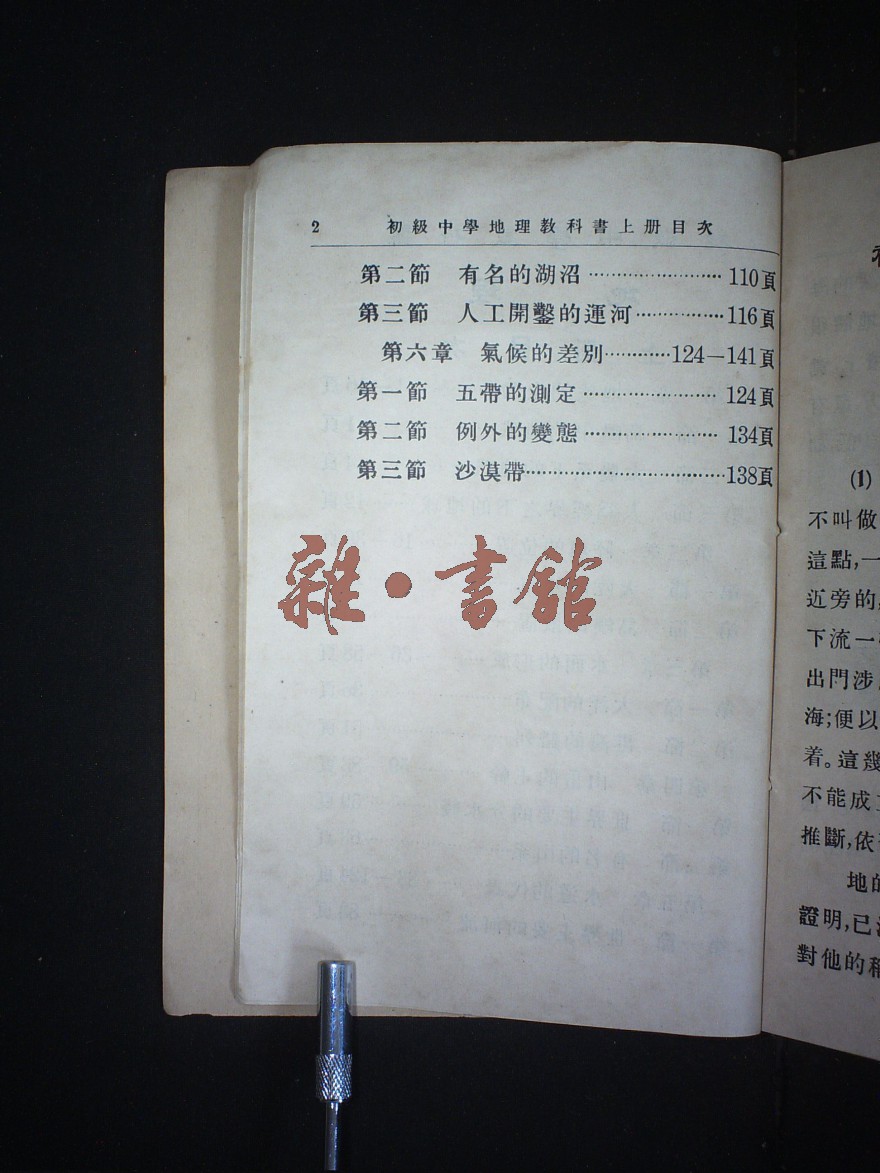 2 初級中學地理教科書上册目次
第二節 有名的湖沼……………………110頁
第三節 人工開鑿的運河……………116頁
第六章 氣候的差別…………124—141頁
第一節 五帶的測定……………………124頁
第二節 例外的變態……………………134頁
第三節 沙漠帶………………………………138頁
雜·書館
(1)
不叫做
這點,一
近旁的
下流一
出門涉
海;便以
着。這幾
不能成
推斷,依
地的
證明,已
對他的